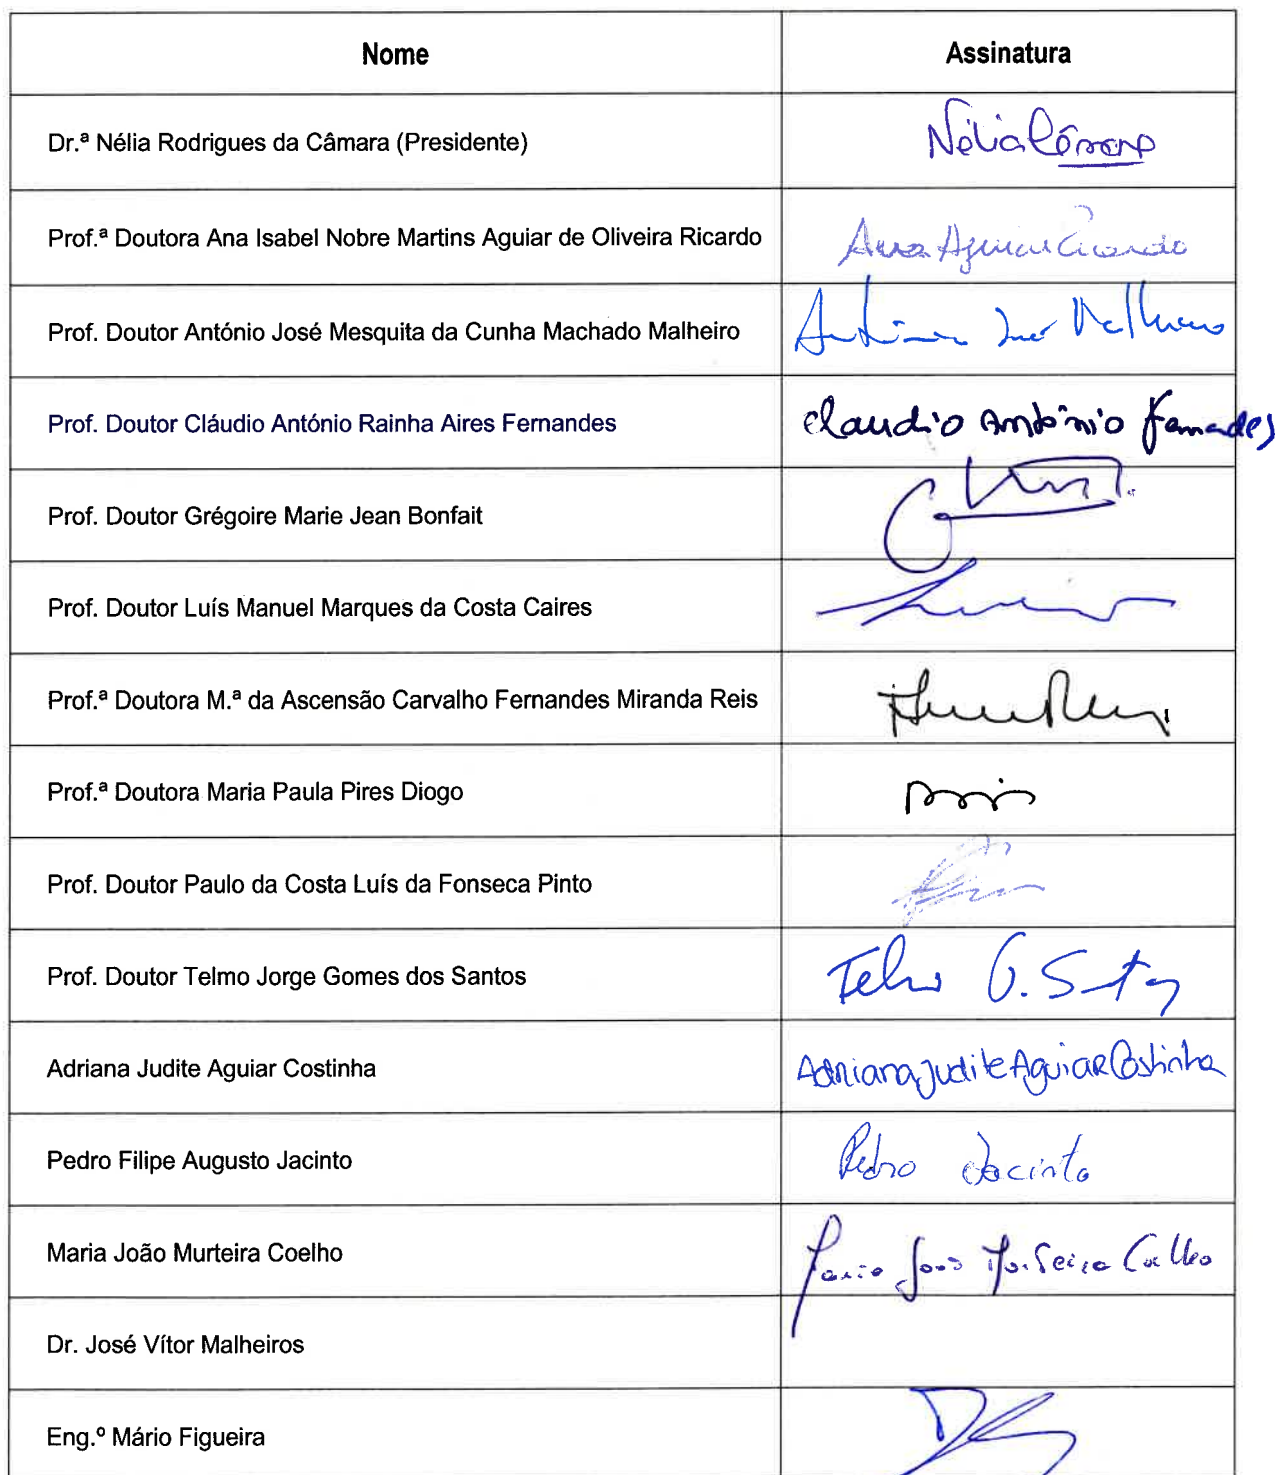 Nome Assinatura
Dr.ª Nélia Rodrigues da Câmara (Presidente) Nélia Câmara
Prof.ª Doutora Ana Isabel Nobre Martins Aguiar de Oliveira Ricardo Ana Aguiar Ricardo
Prof. Doutor António José Mesquita da Cunha Machado Malheiro António José Malheiro
Prof. Doutor Cláudio António Rainha Aires Fernandes Claudio António Fernandes
Prof. Doutor Grégoire Marie Jean Bonfait
Prof. Doutor Luís Manuel Marques da Costa Caires
Prof.ª Doutora M.ª da Ascensão Carvalho Fernandes Miranda Reis
Prof.ª Doutora Maria Paula Pires Diogo
Prof. Doutor Paulo da Costa Luís da Fonseca Pinto
Prof. Doutor Telmo Jorge Gomes dos Santos Telmo G. Santos
Adriana Judite Aguiar Costinha Adriana Judite Aguiar Costinha
Pedro Filipe Augusto Jacinto Pedro Jacinto
Maria João Murteira Coelho Maria João Murteira Coelho
Dr. José Vítor Malheiros
Eng.º Mário Figueira